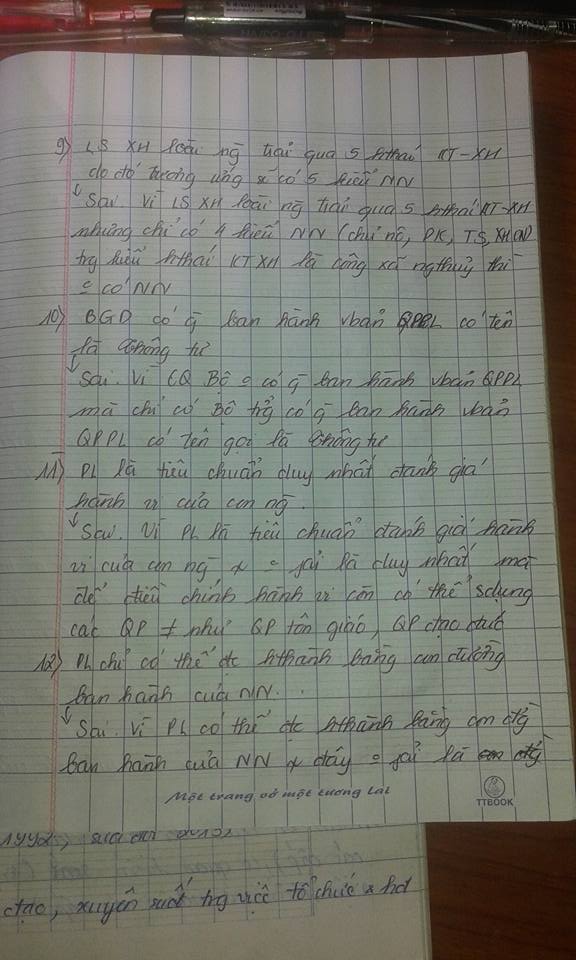 9) LS XH loài ng̀ trải qua 5 hthái KT-XH
do đó tương ứng sẽ có 5 kiểu NN
↳ Sai. Vì LS XH loài ng̀ trải qua 5 hthái KT-XH
nhưng chỉ có 4 kiểu NN (chủ nô, PK, TS, XHCN)
trg kiểu hthái KTXH là công xã ngthuỷ thì
= có NN
10) BGD có q̀ ban hành vbản QPPL có tên
là Thông tư
↳ Sai. Vì CQ Bộ = có q̀ ban hành vbản QPPL
mà chỉ có Bộ trg̉ có q̀ ban hành vbản
QPPL có tên gọi là Thông tư
11) PL là tiêu chuẩn duy nhất đánh giá
hành vi của con ng̀.
↳ Sai. Vì PL là tiêu chuẩn đánh giá hành
vi của con ng̀ x = fải là duy nhất mà
để điều chỉnh hành vi còn có thể sdụng
các QP ≠ như QP tôn giáo, QP đạo đức
12) PL chỉ có thể đc hthành bằng con đường
ban hành của NN.
↳ Sai. Vì PL có thể đc hthành bằng con đg̀
ban hành của NN x đấy = fải là đg̀
Một trang vở một tương lai
TTBOOK
1992, sửa đổi 2013,
đạo, xuyên suốt trg việc tổ chức & hđ